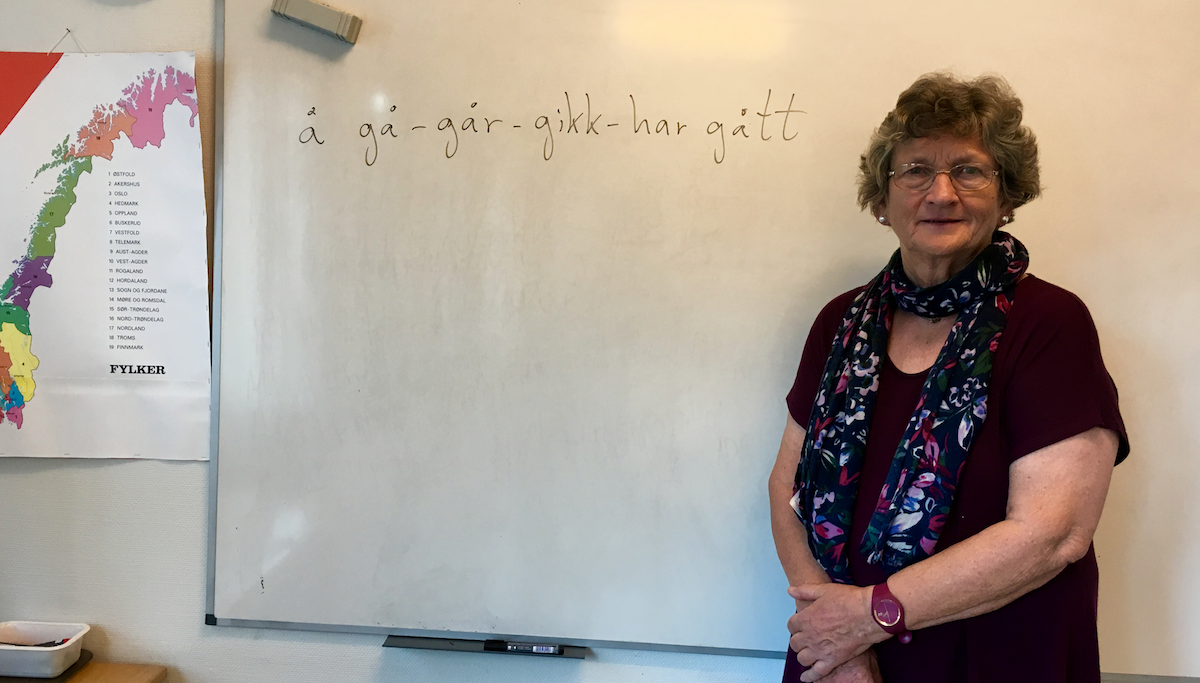 å gå - går - gikk - har gått
1 ØSTFOLD
2 AKERSHUS
3 OSLO
4 HEDMARK
5 OPPLAND
6 BUSKERUD
7 VESTFOLD
8 TELEMARK
9 AUST-AGDER
10 VEST-AGDER
11 ROGALAND
12 HORDALAND
13 SOGN OG FJORDANE
14 MØRE OG ROMSDAL
15 SØR-TRØNDELAG
16 NORD-TRØNDELAG
17 NORDLAND
18 TROMS
19 FINNMARK
FYLKER